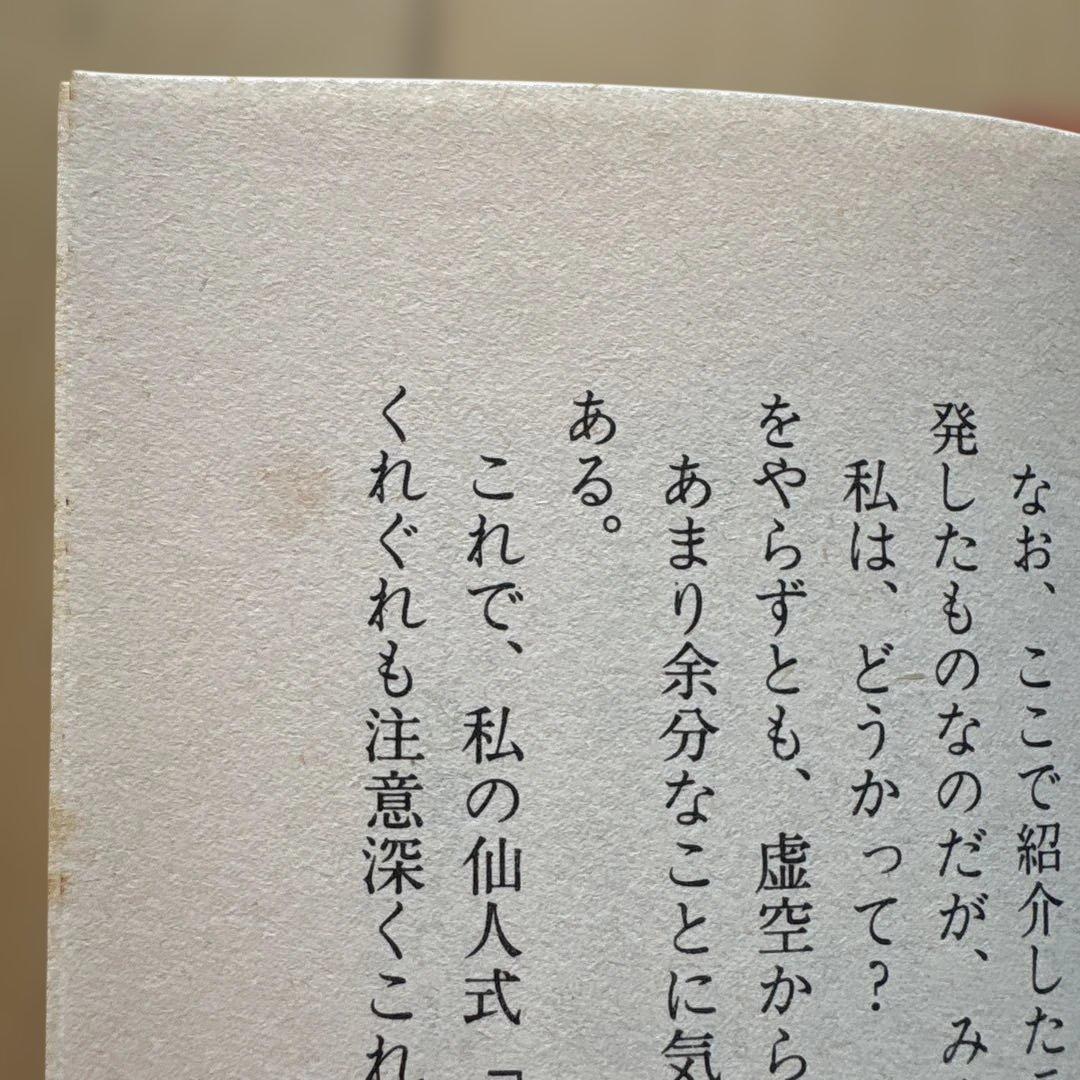 なお、ここで紹介した
発したものなのだが、み
私は、どうかって？
をやらずとも、虚空から
あまり余分なことに気
ある。
これで、私の仙人式「
くれぐれも注意深くこれ